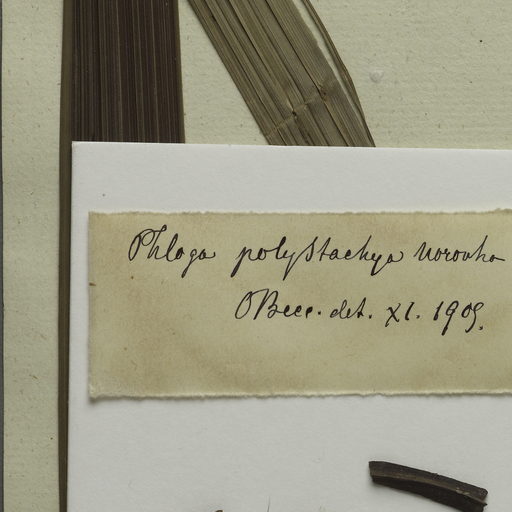 Phloga polystachya Noronha
OBecc. det. XI. 1909.